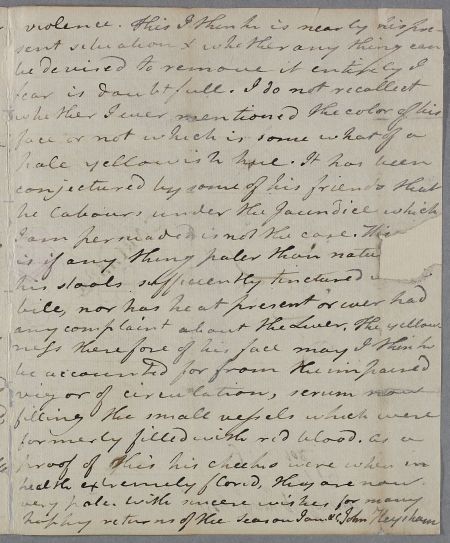 violence. This I think is nearly his pre-
sent situation & whether any thing can
be devised to remove it entirely I
fear is doubtfull. I do not recollect
whether I ever mentioned the color of his
face or not which is some what of a
pale yellowish hue. It has been
conjectured by some of his friends that
he labours under the Jaundice which
I am persuaded is not the case.
is if any thing paler than natu
his stools sufficiently tinctured
bile, nor has he at present or ever had
any complaint about the Liver, the yellow-
ness therefore of his face may I think
be accounted for from the impaired
vigor of circulation, serum now
filling the small vessels which were
formerly filled with red blood. as a
proof of this his cheeks were when in
health extremely florid, they are now
very pale. With sincere wishes for many
happy returns of the season I am &c John Heysham